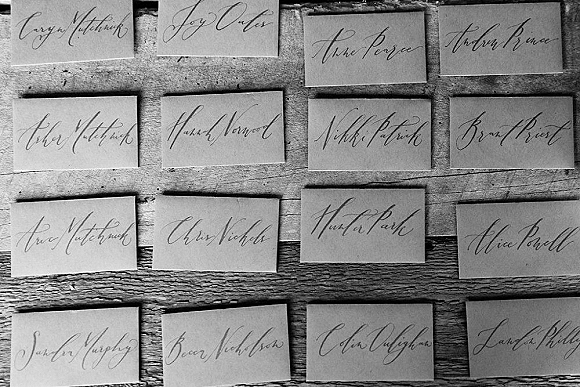 Caryn Mutchnik
Joy Oates
Anne Pearce
Andrew Pence
Asher Mutchnik
Hannah Norwood
Nikki Patrick
Brant Priest
Mutchnik
Chris Nichols
Hunter Park
Alice Powell
Sandra Murphy
Becca Nicholson
Colin
Landin Philly